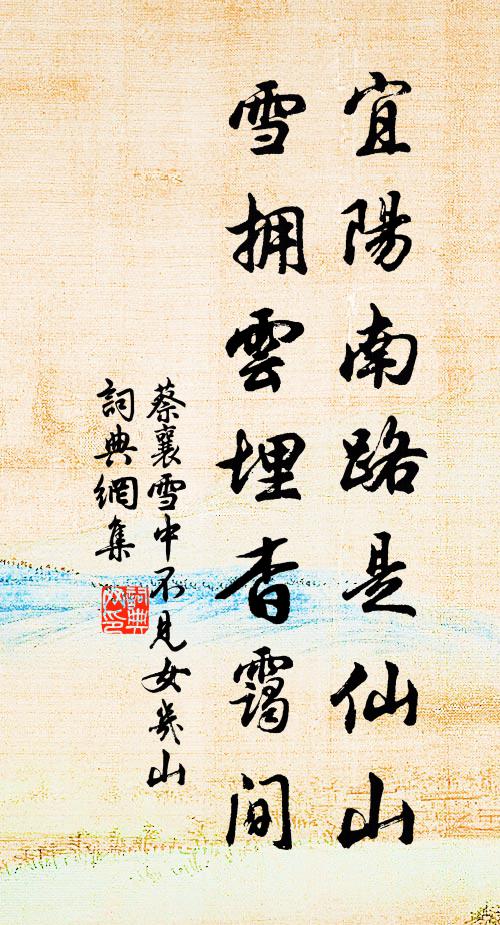 宜陽南路是仙山
雪拥雲埋杳靄間
蔡襄雪中不見女幾山
詞典網集